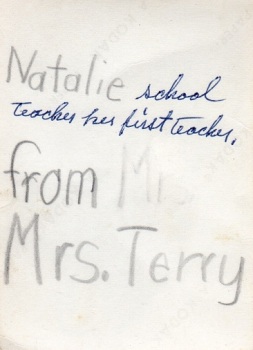 Natalie school
teacher her first teacher.
from Mrs
Mrs. Terry